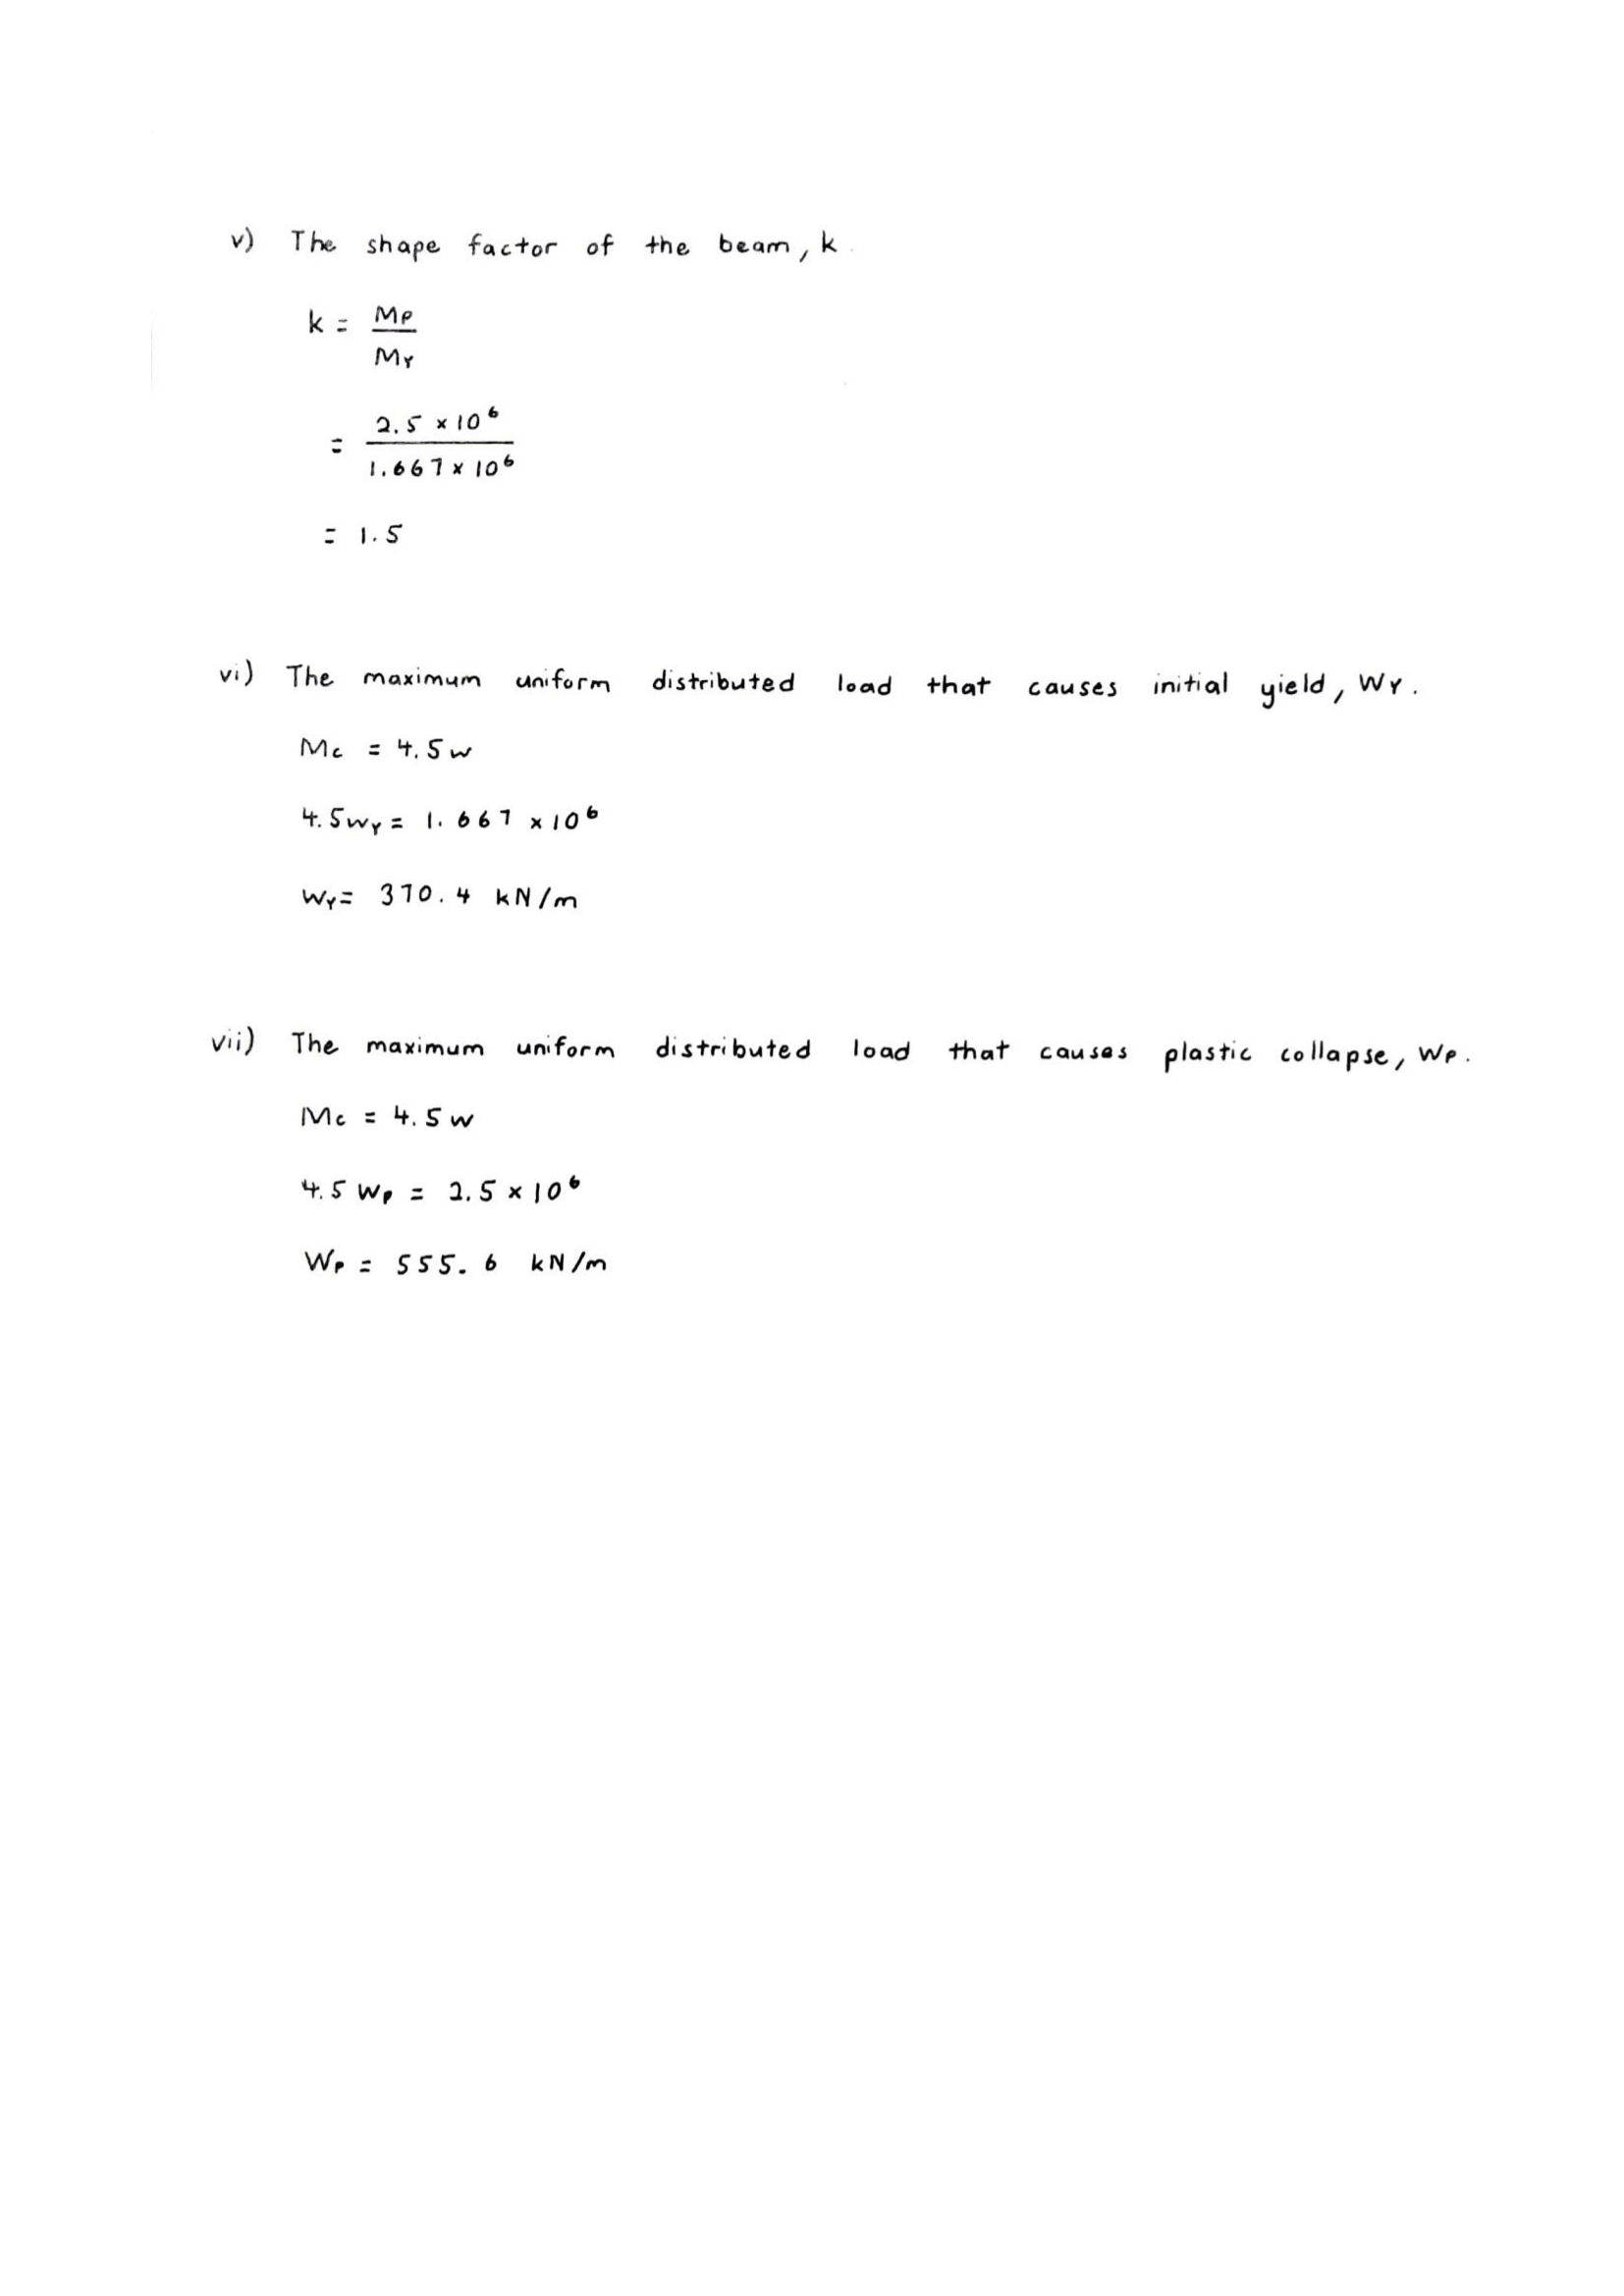 v) The shape factor of the beam, k.
k = Mp
My
= 2.5 × 10⁶
1.667 × 10⁶
= 1.5
vi) The maximum uniform distributed load that causes initial yield, Wy.
Mc = 4.5w
4.5wy = 1.667 × 10⁶
Wy = 370.4 kN/m
vii) The maximum uniform distributed load that causes plastic collapse, Wp.
Mc = 4.5w
4.5 Wp = 2.5 × 10⁶
Wp = 555.6 kN/m